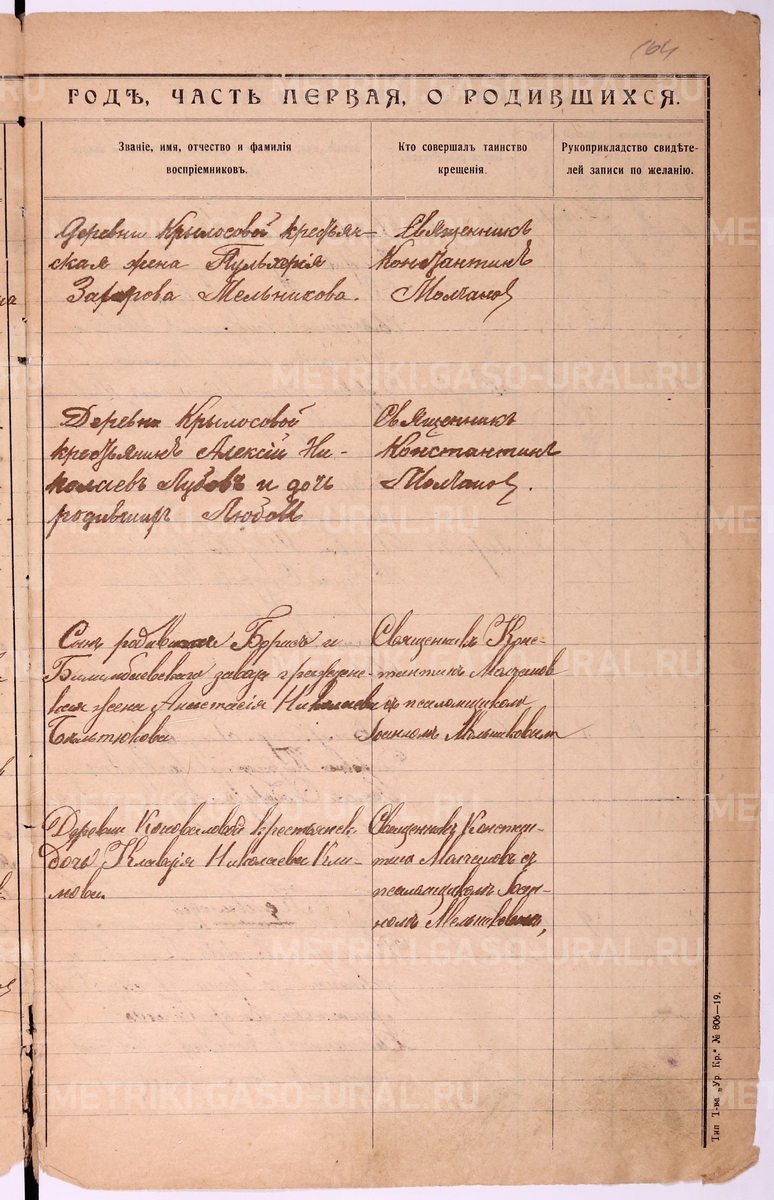 164
ГОДѢ, ЧАСТЬ ПЕРВАЯ, О РОДИВШИХСЯ.
Званіе, имя, отчество и фамилія
воспріемниковъ.
Кто совершалъ таинство
крещенія.
Рукоприкладство свидѣте-
лей записи по желанію.
Деревни Крылосовой крестьян-
ская жена Пульхерія
Захарова Мельникова.
Священникъ
Константинъ
Молчанов
Деревни Крылосовой
крестьянинъ Алексій Ни-
колаевъ Лубовъ и дочь
родивших Любовь
Священникъ
Константинъ
Молчанов.
Сынъ родивших Борисъ и
Билимбаевскаго завода граждан-
ская жена Анастасія Николаева
Бильтюкова
Священникъ Конс-
тантинъ Молчанов
съ псаломщикомъ
Іоанномъ Мельниковым
Деревни Коноваловой крестьянск.
дочь Клавдія Николаева Кли-
мова.
Священникъ Констан-
тинъ Молчановъ съ
псаломщикомъ Іоан-
номъ Мельниковымъ,
Тип. Т-ва „Ур. Кр.“ № 806—19.
METRIKI.GASO-URAL.RU